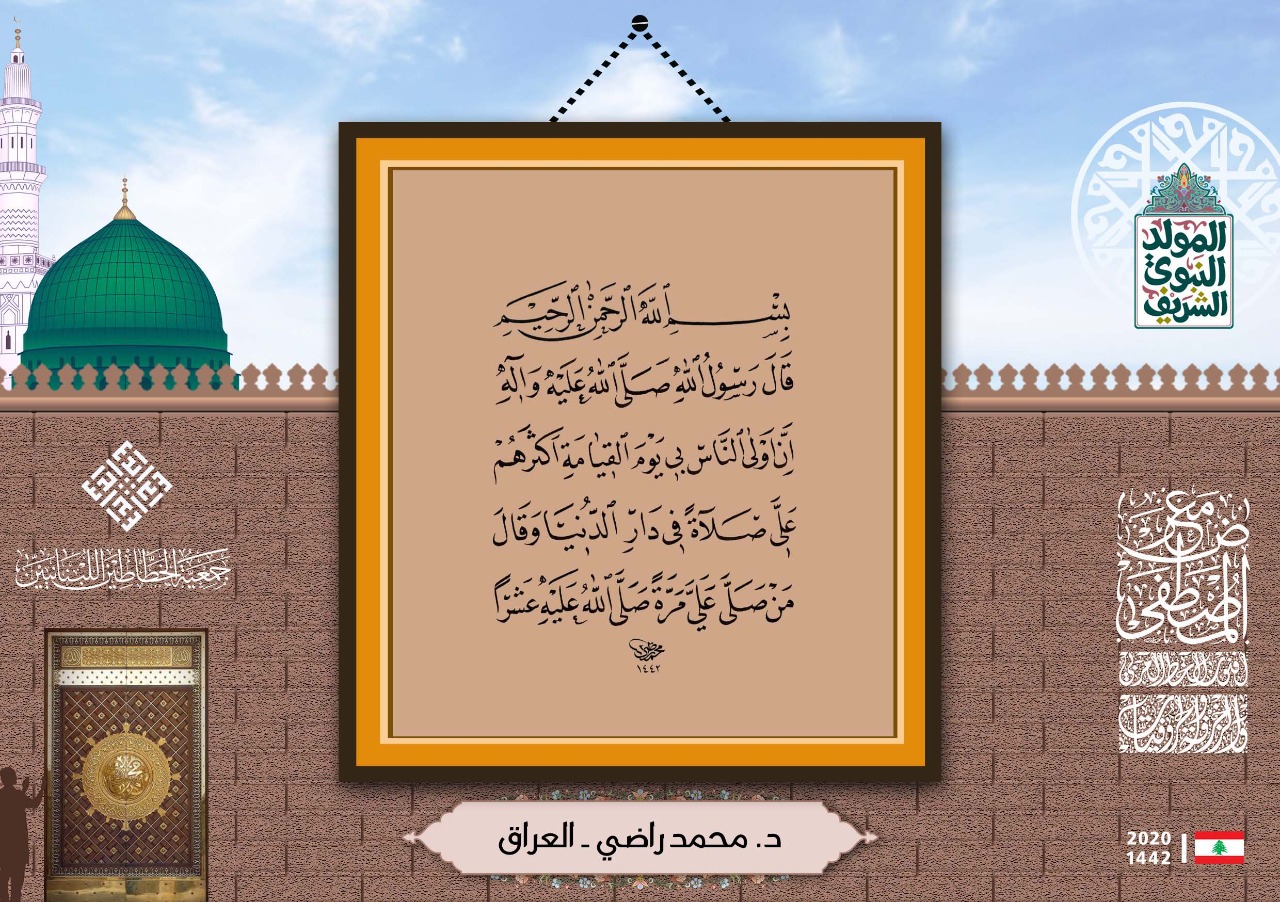 بِسْمِ اللهِ الرَّحْمٰنِ الرَّحِيْمِ
قَالَ رَسُوْلُ اللهِ صَلَّى اللهُ عَلَيْهِ وَاٰلِهِ
اِنَّ اَوْلَى النَّاسِ بِي يَوْمَ القِيَامَةِ اَكْثَرُهُمْ
عَلَيَّ صَلَاةً فِي دَارِ الدُّنْيَا وَقَالَ
مَنْ صَلَّى عَلَيَّ مَرَّةً صَلَّى اللهُ عَلَيْهِ عَشْرًا
١٤٤٢
د. محمد راضي - العراق
المولد
النبوي
الشريف
جمعية الخطاطين اللبنانيين
معرض
المصطفى
2020
1442